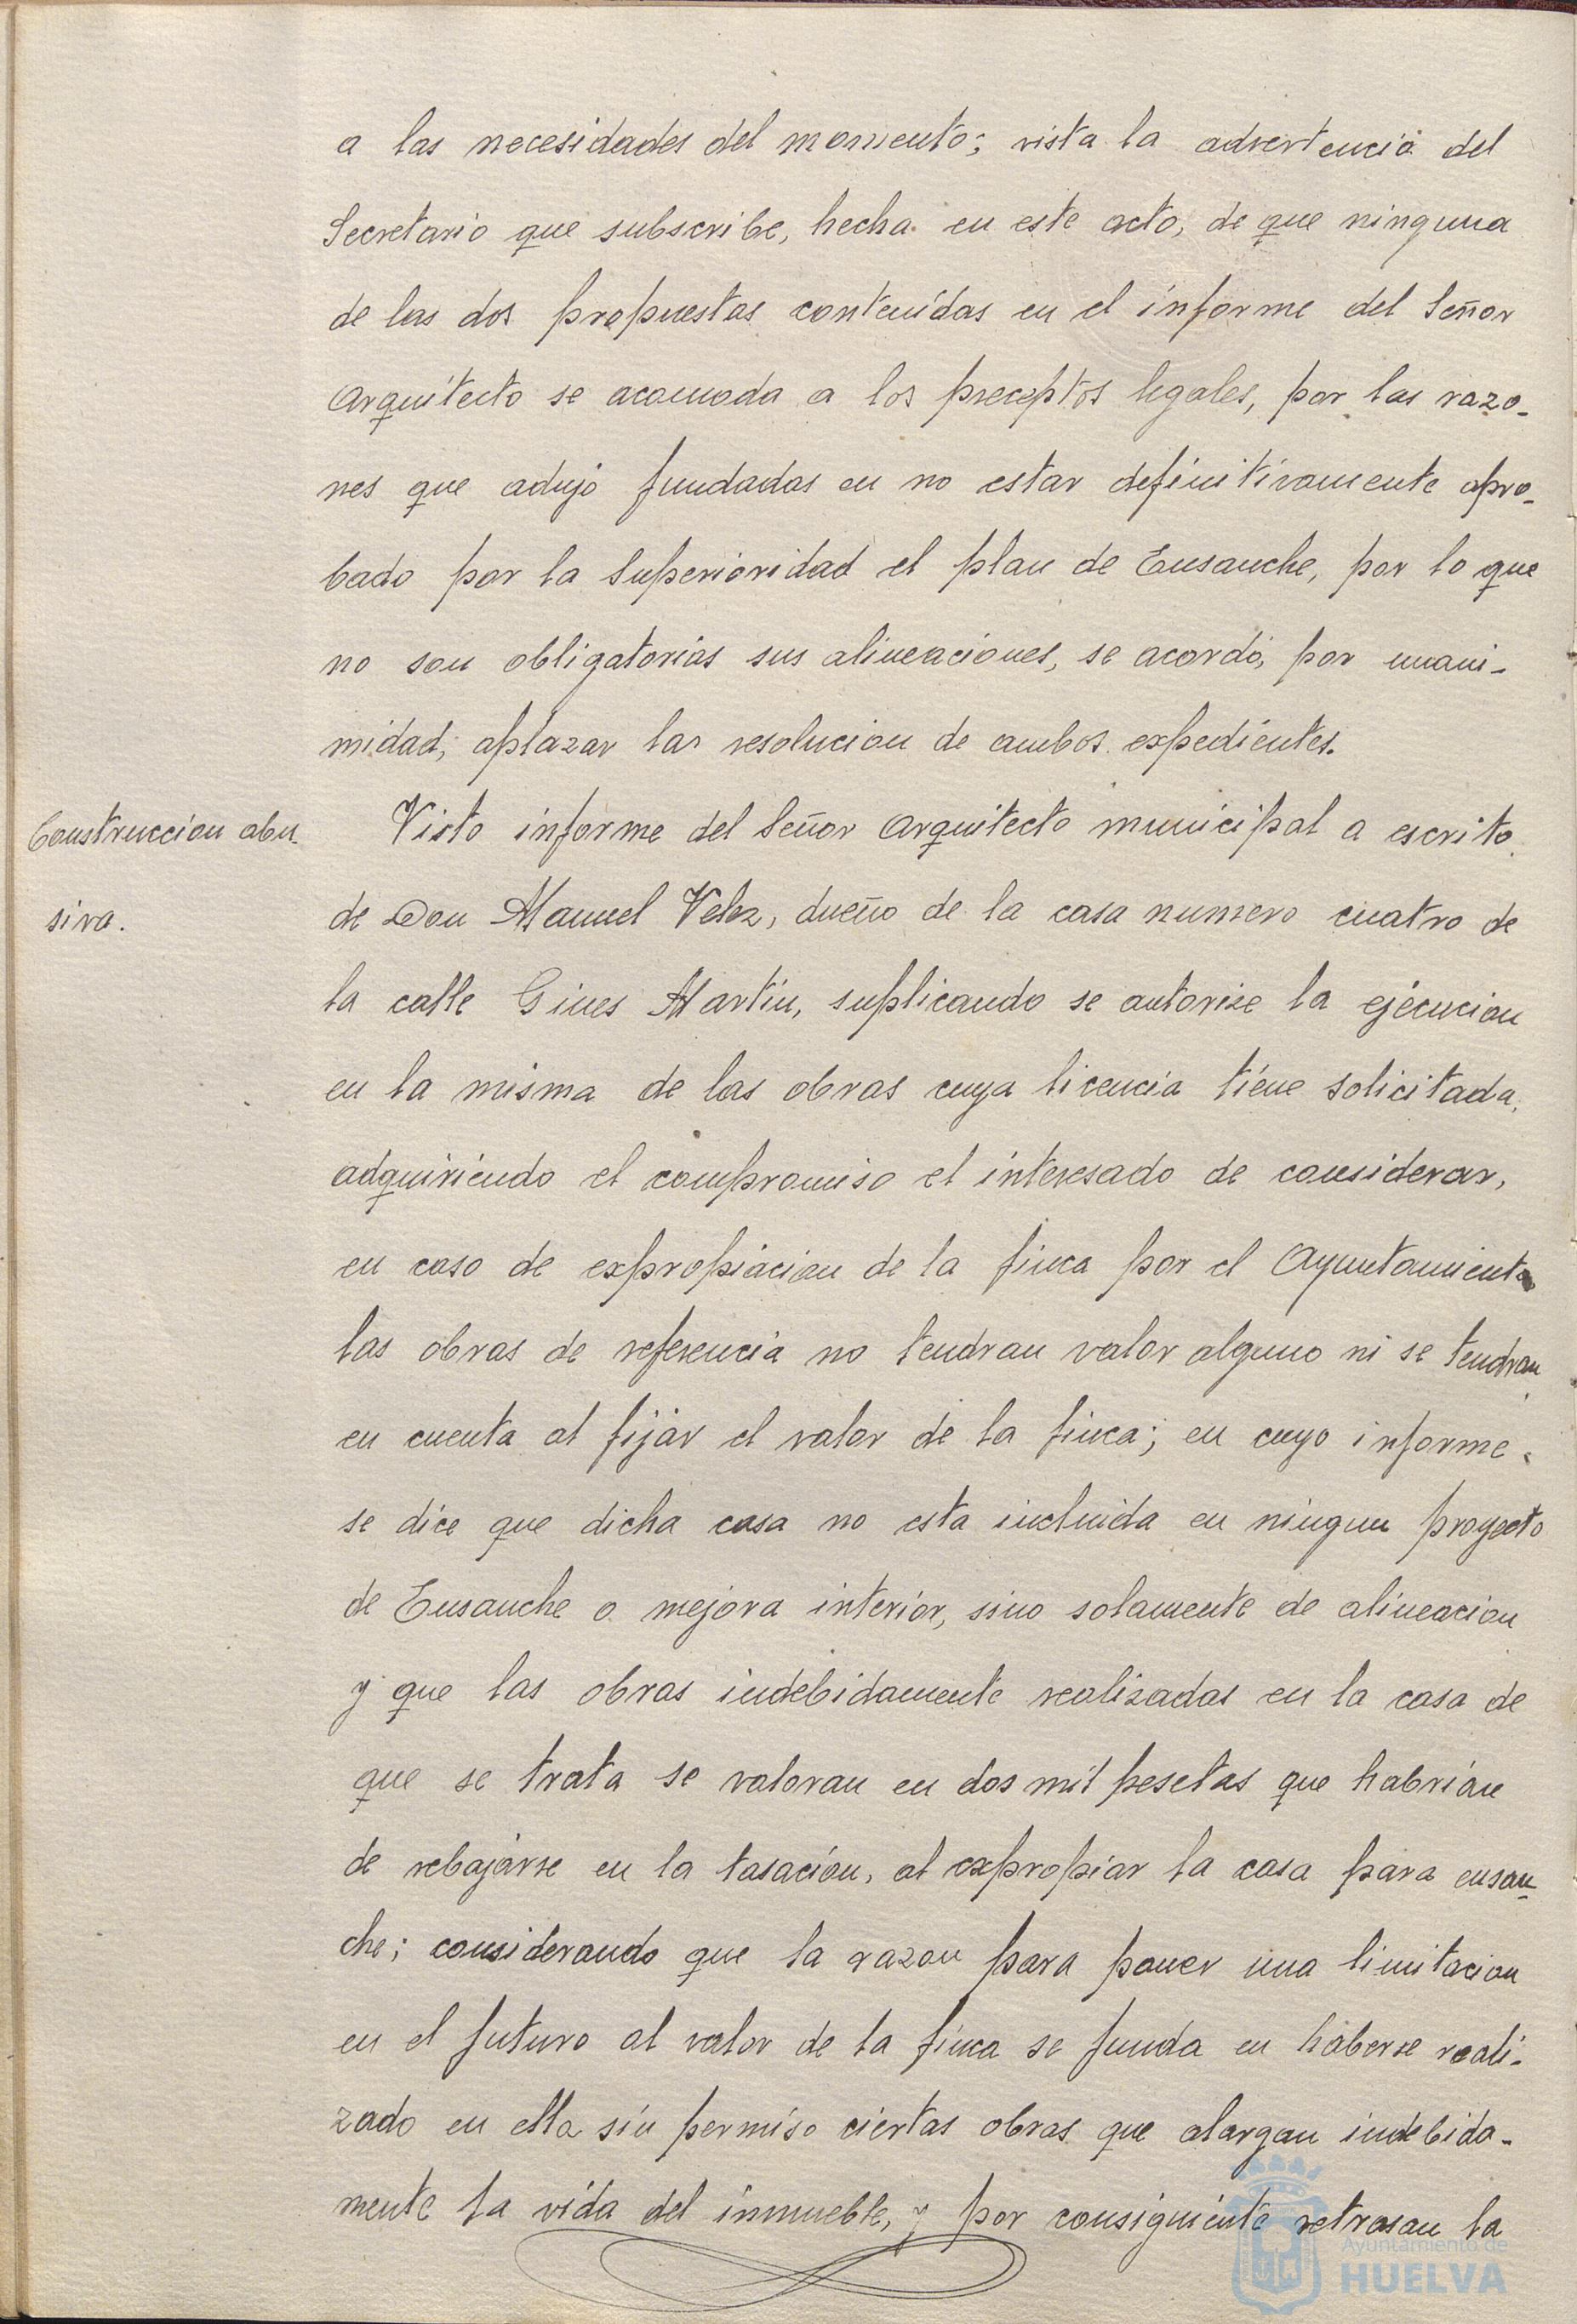 a las necesidades del momento; vista la advertencia del
Secretario que subscribe, hecha en este acto, de que ninguna
de las dos propuestas contenidas en el informe del Señor
Arquitecto se acomoda a los preceptos legales, por las razo-
nes que adujo fundadas en no estar definitivamente apro-
bado por la Superioridad el plan de Ensanche, por lo que
no son obligatorias sus alineaciones, se acordó, por unani-
midad, aplazar las resolucion de ambos expedientes.
Construccion abu-
siva.
Visto informe del Señor Arquitecto municipal a escrito
de Don Manuel Velez, dueño de la casa numero cuatro de
la calle Gines Martin, suplicando se autorize la ejecucion
en la misma de las obras cuya licencia tiene solicitada,
adquiriendo el compromiso el interesado de considerar,
en caso de expropiacion de la finca por el Ayuntamiento
las obras de referencia no tendran valor alguno ni se tendran
en cuenta al fijar el valor de la finca; en cuyo informe
se dice que dicha casa no esta incluida en ningun proyecto
de Ensanche o mejora interior, sino solamente de alineacion
y que las obras indebidamente realizadas en la casa de
que se trata se valoran en dos mil pesetas que habrian
de rebajarse en la tasacion, al expropiar la casa para ensan-
che; considerando que la razon para poner una limitacion
en el futuro al valor de la finca se funda en haberse reali-
zado en ella sin permiso ciertas obras que alargan indebida-
mente la vida del inmueble, y por consiguiente retrasan la
Ayuntamiento de
HUELVA